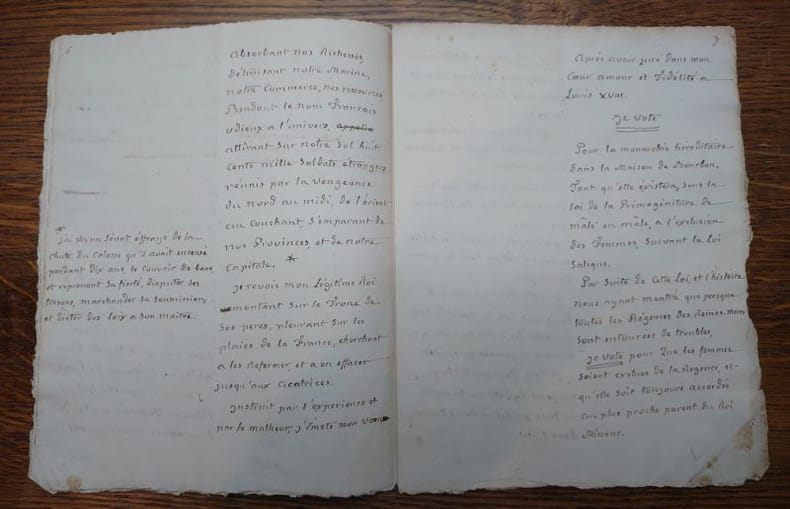 6
absorbant nos Richesses,
détruisant notre Marine,
notre Commerce, nos resources,
Rendant le nom Français
odieux a l'univers, appella
attirant sur notre sol huit
cents mille soldats étrangers
réunis par la vengeance
du Nord au midi, de l'orient
au Couchant, s'emparant de
nos Provinces, et de notre
Capitale. *
Je revois mon Légitime Roi
remontant sur le Trone de
Ses peres, pleurant sur les
plaies de la France, cherchant
a les Refermer, et a en effacer
jusqu'aux Cicatrices.
Instruit par l'expérience et
par le malheur, j'émets mon Voeu
*
J'ai vu un Sénat éffrayé de la
chute du Colosse qu'il avait encensé
pendant dix ans, le couvrir de boue,
et reprenant sa fierté, disputer ses
trésors, marchander sa soumission,
et dicter des loix a son maître.
7
Après avoir juré dans mon
Cœur amour et Fidélité a
Louis XVIII.
Je Vote
Pour la monarchie héréditaire
dans la Maison de Bourbon,
Tant qu'elle éxistera, sous la
loi de la Primogéniture de
mâle en mâle, a l'exclusion
des Femmes, suivant la loi
salique.
Par suite de Cette Loi, et l'histoire
nous ayant montré que presque
toutes les Régences des Reines
sont entourées de troubles,
Je Vote pour que les femmes
soient exclues de la Régence, et
qu'elle soit toujours accordée
au plus proche parent du Roi
Mineur.